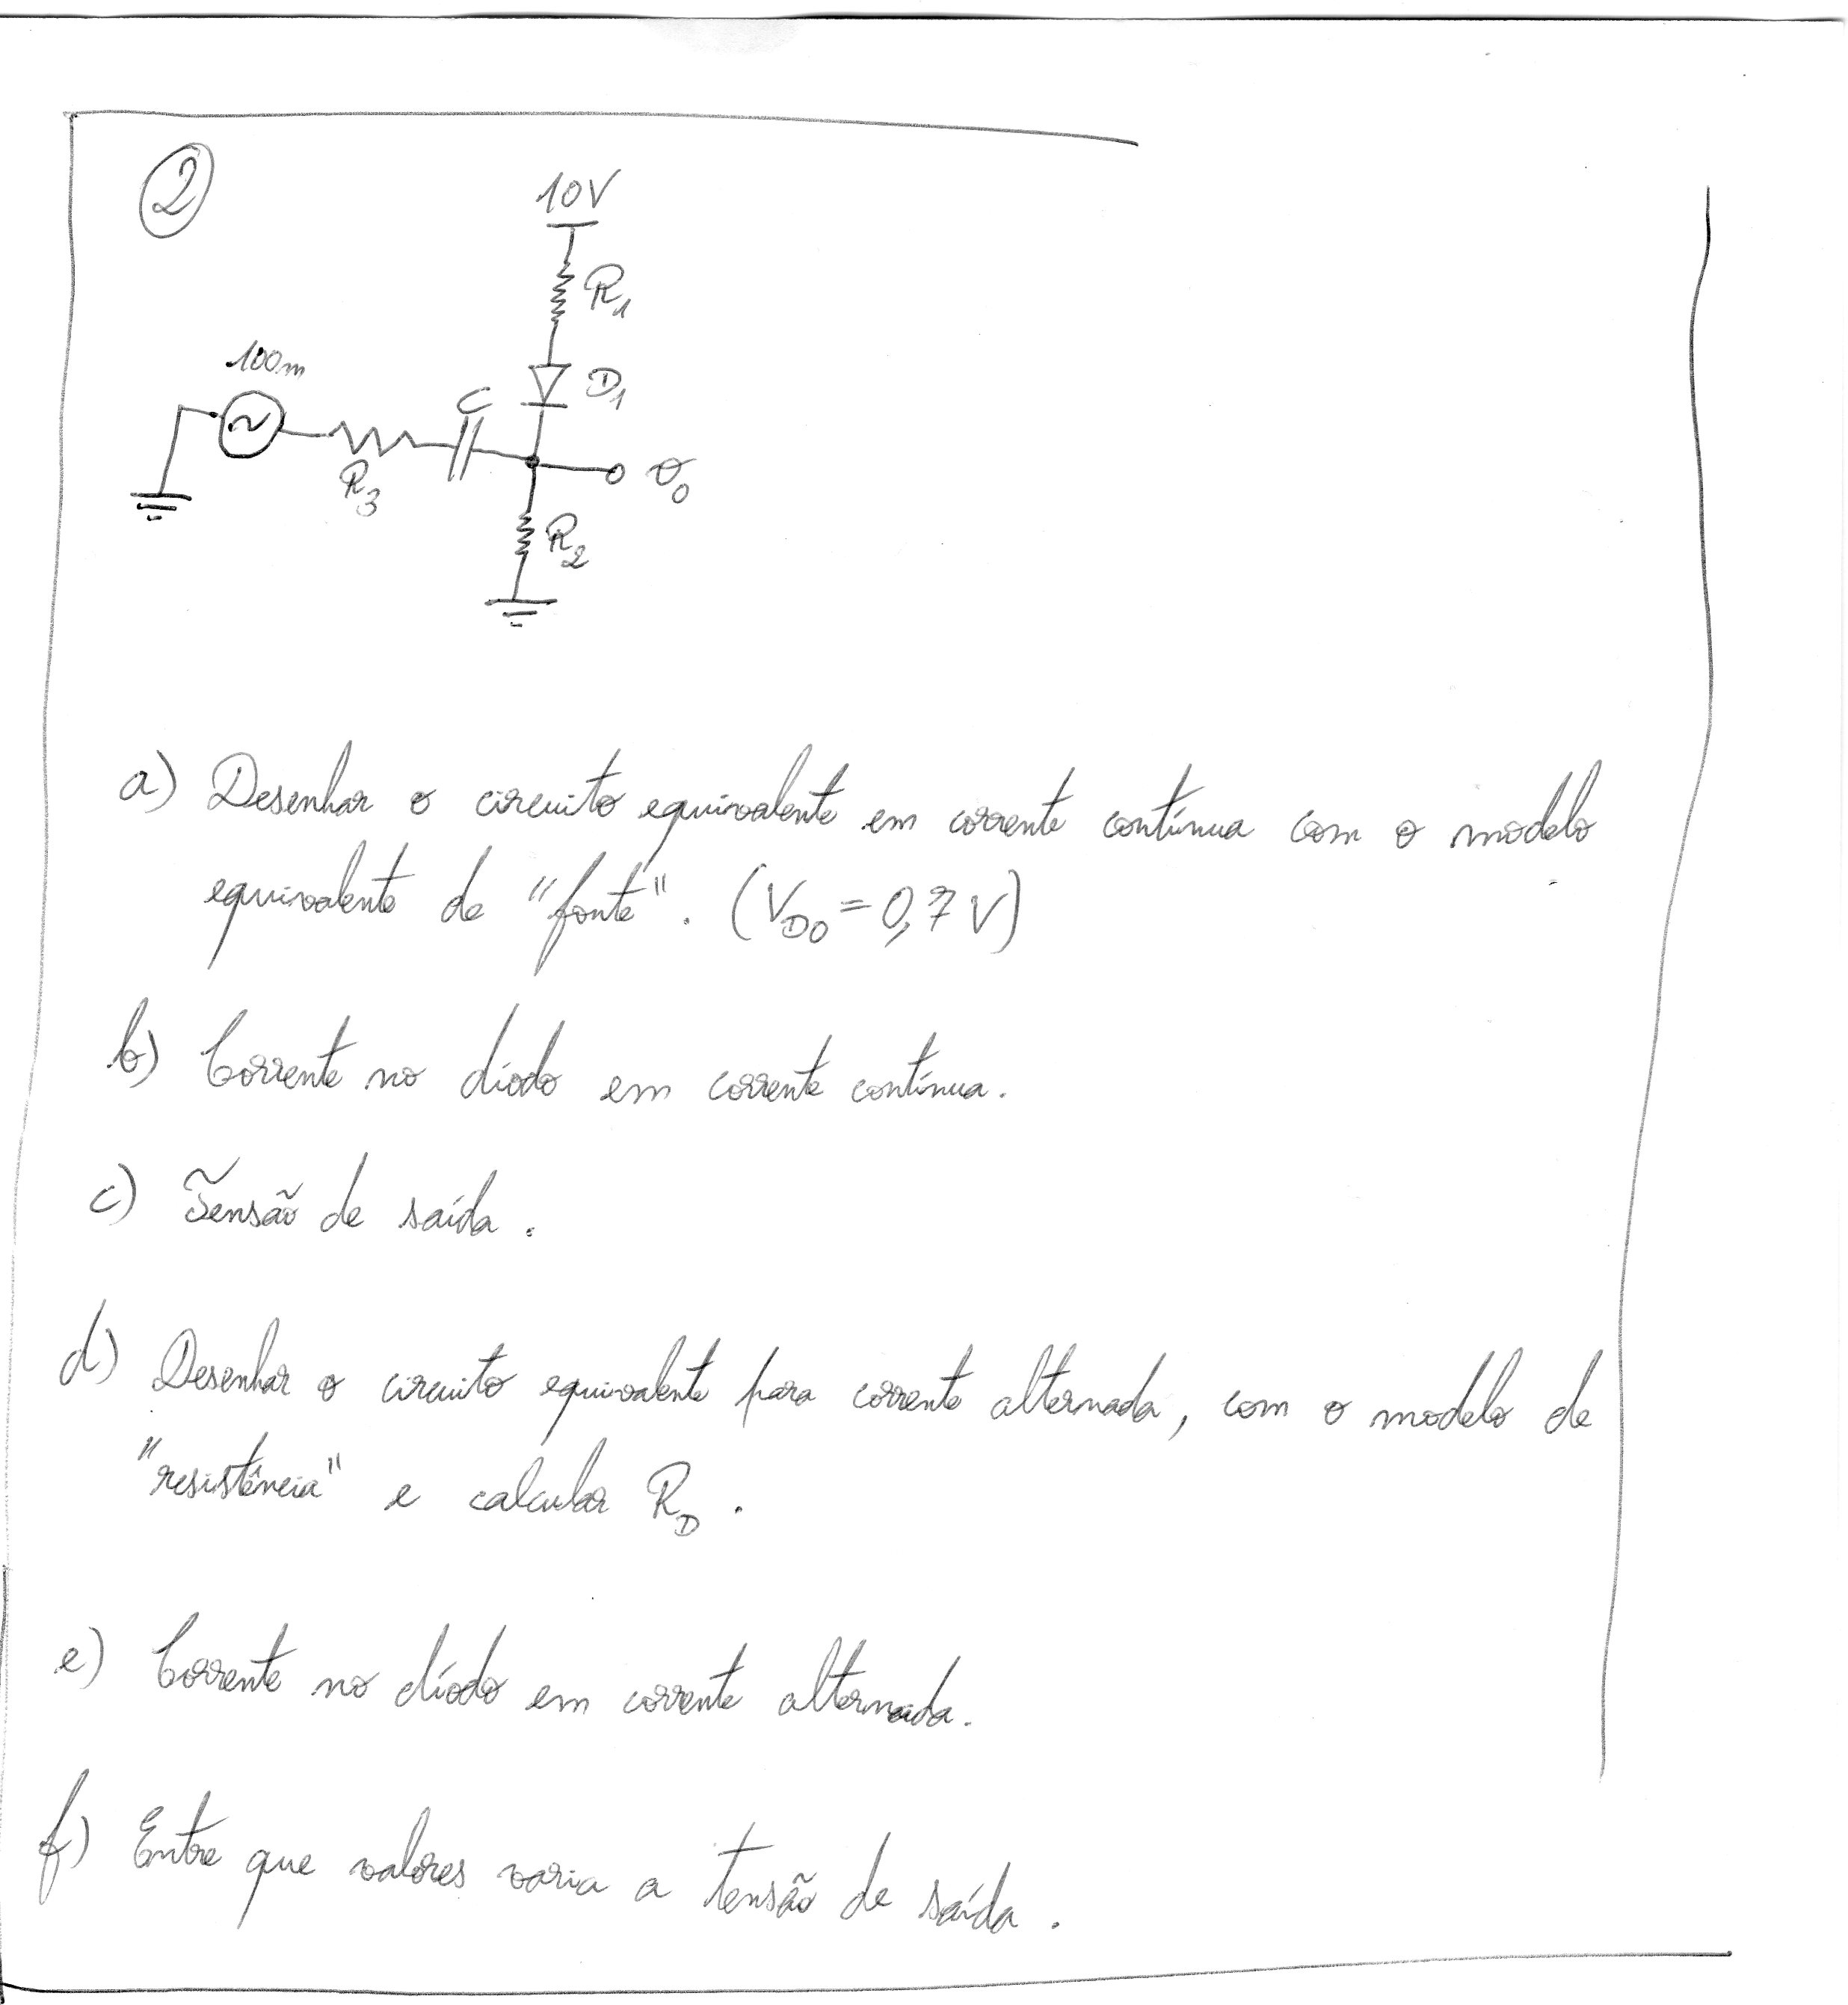 2
10V
R1
100m
D1
C
R3
vo
R2
a) Desenhar o circuito equivalente em corrente contínua com o modelo
equivalente de "fonte". (VDO = 0,7 V)
b) Corrente no díodo em corrente contínua.
c) Tensão de saída.
d) Desenhar o circuito equivalente para corrente alternada, com o modelo de
"resistência" e calcular RD.
e) Corrente no díodo em corrente alternada.
f) Entre que valores varia a tensão de saída.